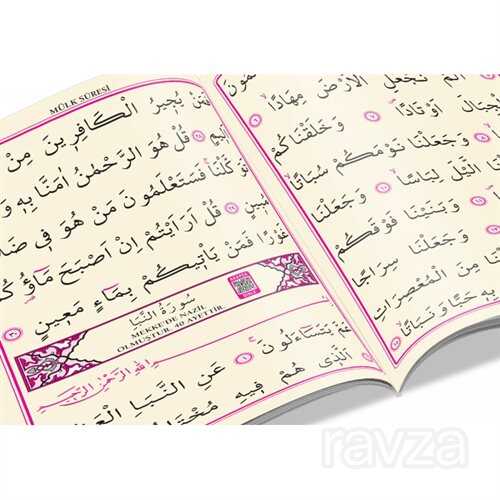 MÜLK SÛRESİ
فَمَنْ يُجٖيرُ الْكَافِرٖينَ مِنْ
قُلْ هُوَ الرَّحْمٰنُ اٰمَنَّا بِهٖ وَ
تَوَكَّلْنَا فَسَتَعْلَمُونَ مَنْ هُوَ فٖى ضَلَا
قُلْ اَرَاَيْتُمْ اِنْ اَصْبَحَ مَاؤُكُ
غَوْرًا فَمَنْ يَاْتٖيكُمْ بِمَاءٍ مَعٖينٍ
سُورَةُ النَّبَأِ
MEKKE'DE NAZİL
OLMUŞTUR. 40 AYETTİR
بِسْمِ اللّٰهِ الرَّحْمٰنِ الرَّحٖيمِ
عَمَّ يَتَسَاءَلُونَ عَنِ النَّبَاِ الْعَ
اَلَّذٖى هُمْ فٖيهِ مُخْتَلِ
اَلَمْ نَجْعَلِ الْاَرْضَ مِهَادًا
اَوْتَادًا وَخَلَقْنَاكُمْ
وَجَعَلْنَا نَوْمَكُمْ سُبَاتًا وَجَعَلْنَا
الَّيْلَ لِبَاسًا
وَبَنَيْنَا فَوْقَكُمْ
وَجَعَلْنَا سِرَاجًا
مِنَ الْمُعْصِرَاتِ
بِهٖ حَبًّا وَنَبَاتًا
ravza